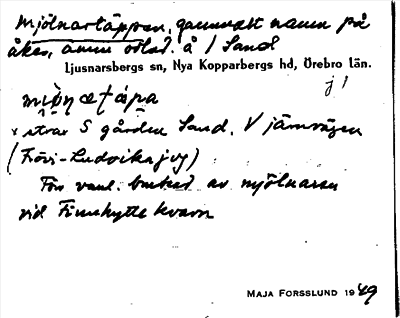 Mjölnartäppan, gammalt namn på
åker, ännu odlad. å 1 Sand
Ljusnarsbergs sn, Nya Kopparbergs hd, Örebro län.
j 1
strax S gården Sand, V järnvägen
(Frövi-Ludvika jvg)
För vanl. brukad av mjölnaren
vid Finnhytte kvarn
MAJA FORSSLUND 1949